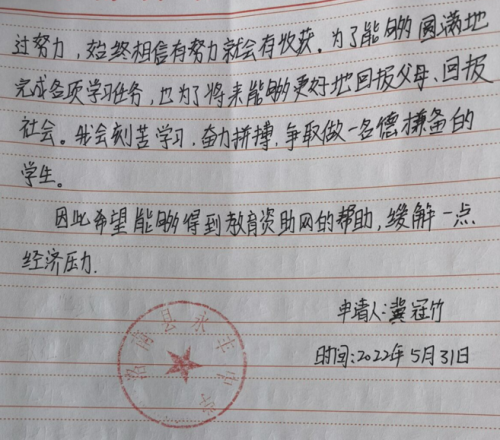 过努力，始终相信有努力就会有收获。为了能够圆满地
完成各项学习任务，也为了将来能够更好地回报父母、回报
社会。我会刻苦学习，奋力拼搏，争取做一名德才兼备的
学生。
因此希望能够得到教育资助网的帮助，缓解一点
经济压力.
申请人:冀冠竹
时间:2022年5月31日
洛南县永丰中学